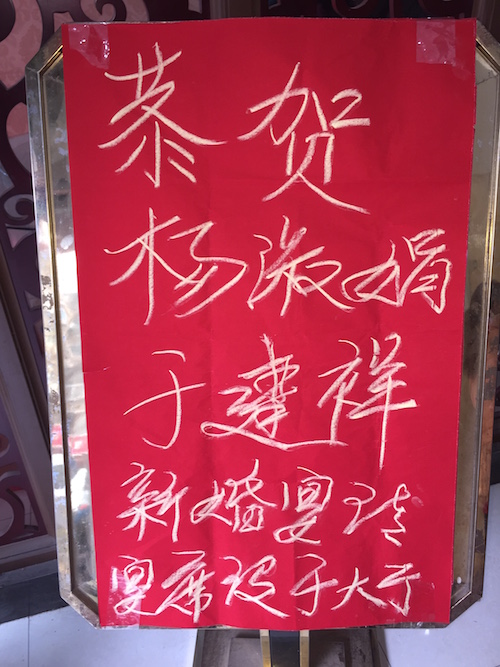 恭贺
杨淑娟
于建祥
新婚宴请
宴席设于大厅